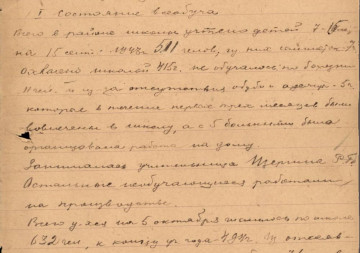 I состояние всеобуча
Всего в районе школы учтено детей 7-15 лет,
на 15 сент. 1948г. 511 человек, из них
Охвачено школой 416 г., не обучалось по болезни
11 чел. и из за отсутствия обуви и одежд - 5 ч
которые в течение первых трех месяцев были
вовлечены в школу, а с 5 больными была
организована работа на дому.
Занималась учительница
Остальные необучающиеся работали
на производстве.
Всего у-ся на 5 октября числилось по школе
632 чел, к концу уч года